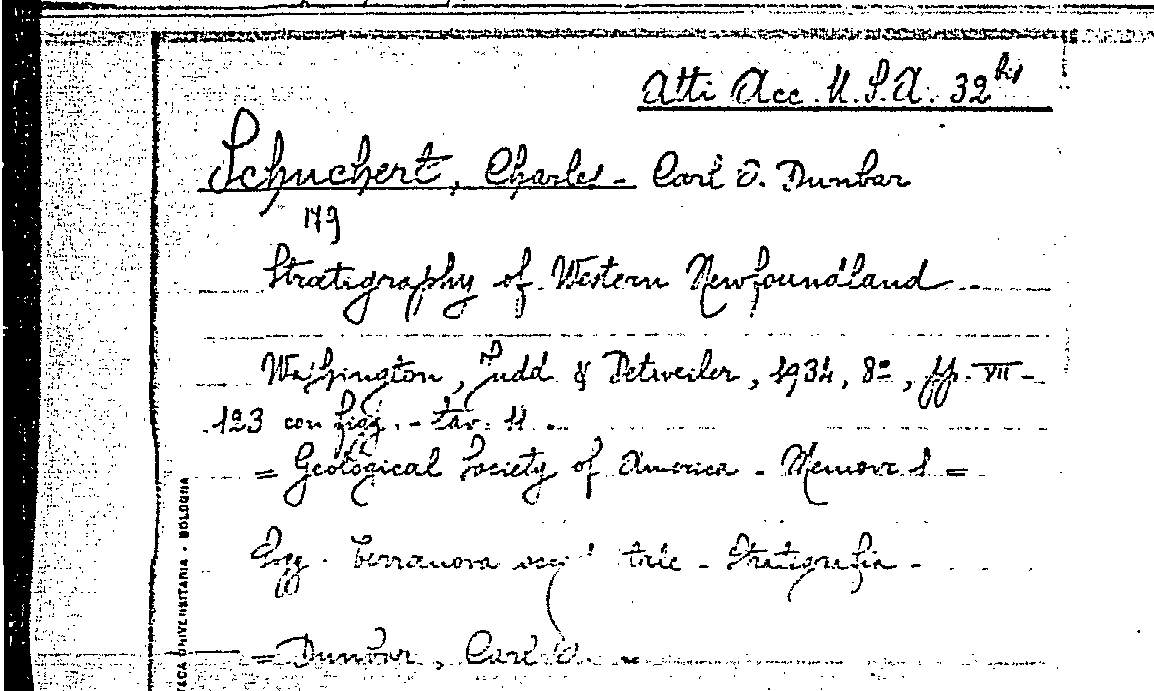 Atti Acc. U.S.A. 32 bis
Schuchert, Charles - Carl O. Dunbar
149
Stratigraphy of Western Newfoundland
Washington, Judd & Detweiler, 1934, 8°, pp. VII-
123 con figg. - tav. 11.
= Geological Society of America - Memoir 1 =
Sogg. Terranova - Stratigrafia -
= Dunbar, Carl O.
TECA UNIVERSITARIA - BOLOGNA